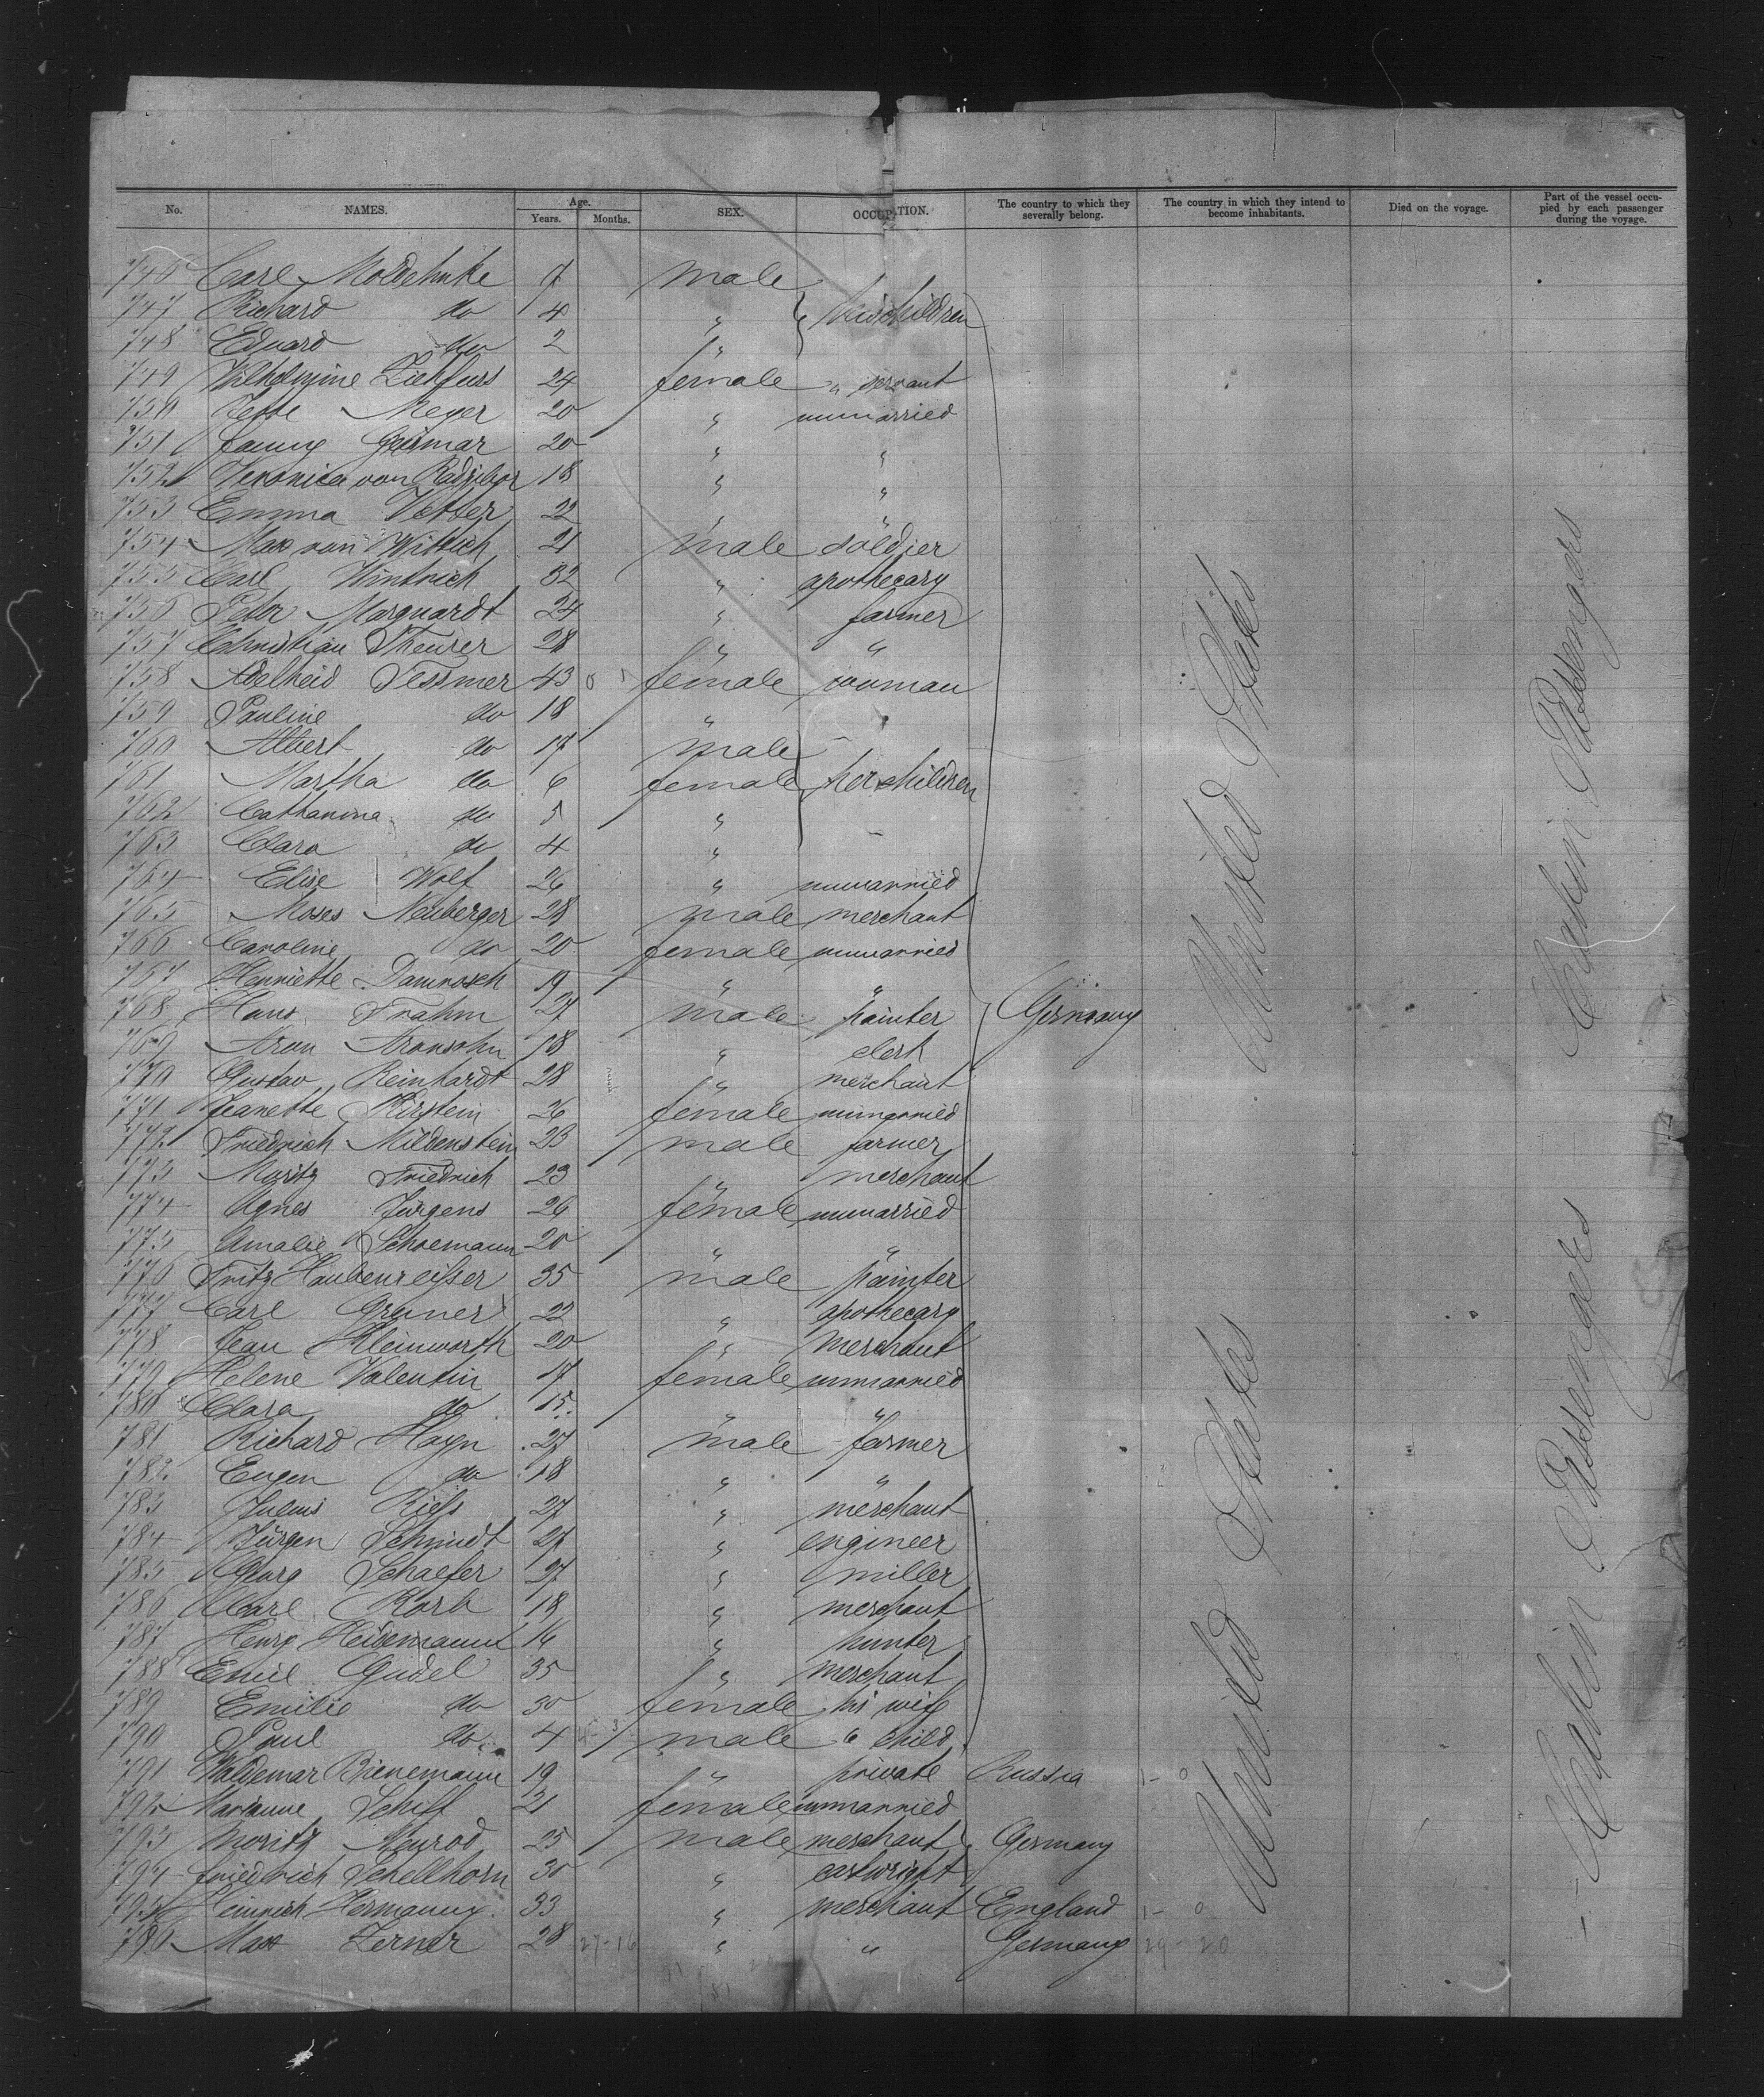 No. NAMES. Age. Years. Months. SEX. OCCUPATION. The country to which they severally belong. The country in which they intend to become inhabitants. Died on the voyage. Part of the vessel occupied by each passenger during the voyage.
746 Carl Moldehnke 7 male
747 Richard do 4 " his children
748 Eduard do 2 "
749 Wilhelmine Ziehfuss 24 female " servant
750 Meyer 20 " unmarried
751 Fanny 20 " "
752 Veronica von Radzibor 18 " "
753 Emma Vetter 22 " "
754 Max von Wittich 21 male soldier
755 Carl Wintrich 32 " apothecary
756 Peter Marquardt 24 " farmer
757 Christian Theurer 28 " "
758 Adelheid Tessmer 43 female woman
759 Pauline do 18 "
760 Albert do 17 male
761 Martha do 6 female her children
762 Catharina do 5 "
763 Clara do 4 "
764 Elise Wolf 26 " unmarried
765 Moses Neuberger 28 male merchant
766 Caroline do 20 female unmarried
767 Henriette Damrosch 19 " "
768 Hans Frahm 27 male painter Germany
769 Aron Aronsohn 18 " clerk
770 Gustav Reinhardt 28 " merchant
771 Jeanette Kirstein 26 female unmarried
772 Friedrich Mildenstein 23 male farmer
773 Moritz Friedrich 23 " merchant
774 Agnes Jürgens 26 female unmarried
775 Amalie Schoemann 20 " "
776 Fritz Haubenreisser 35 male painter
777 Carl Gruner 22 " apothecary
778 Jean Kleinworth 20 " merchant
779 Helene Valentin 17 female unmarried
780 Clara do 15 " "
781 Richard Hayn 27 male farmer
782 Eugen do 18 " "
783 Julius Riess 27 " merchant
784 Jürgen Schmidt 27 " engineer
785 Georg Schaefer 27 " miller
786 Carl Korb 18 " merchant
787 Henry Heidemann 16 " hunter
788 Emil Gudel 35 " merchant
789 Emilie do 30 female his wife
790 Paul do 4 male " child
791 Waldemar Bienemann 19 " private Russia 1 - 0
792 Marianne Schiff 21 female unmarried
793 Moritz 25 male merchant Germany
794 Friedrich Schellhorn 30 " cartwright
795 Heinrich Hermanny 33 " merchant England 1 - 0
796 Max Zerner 28 27-16 " " Germany 29 - 20
United States
United States
Cabin Passengers
Cabin Passengers